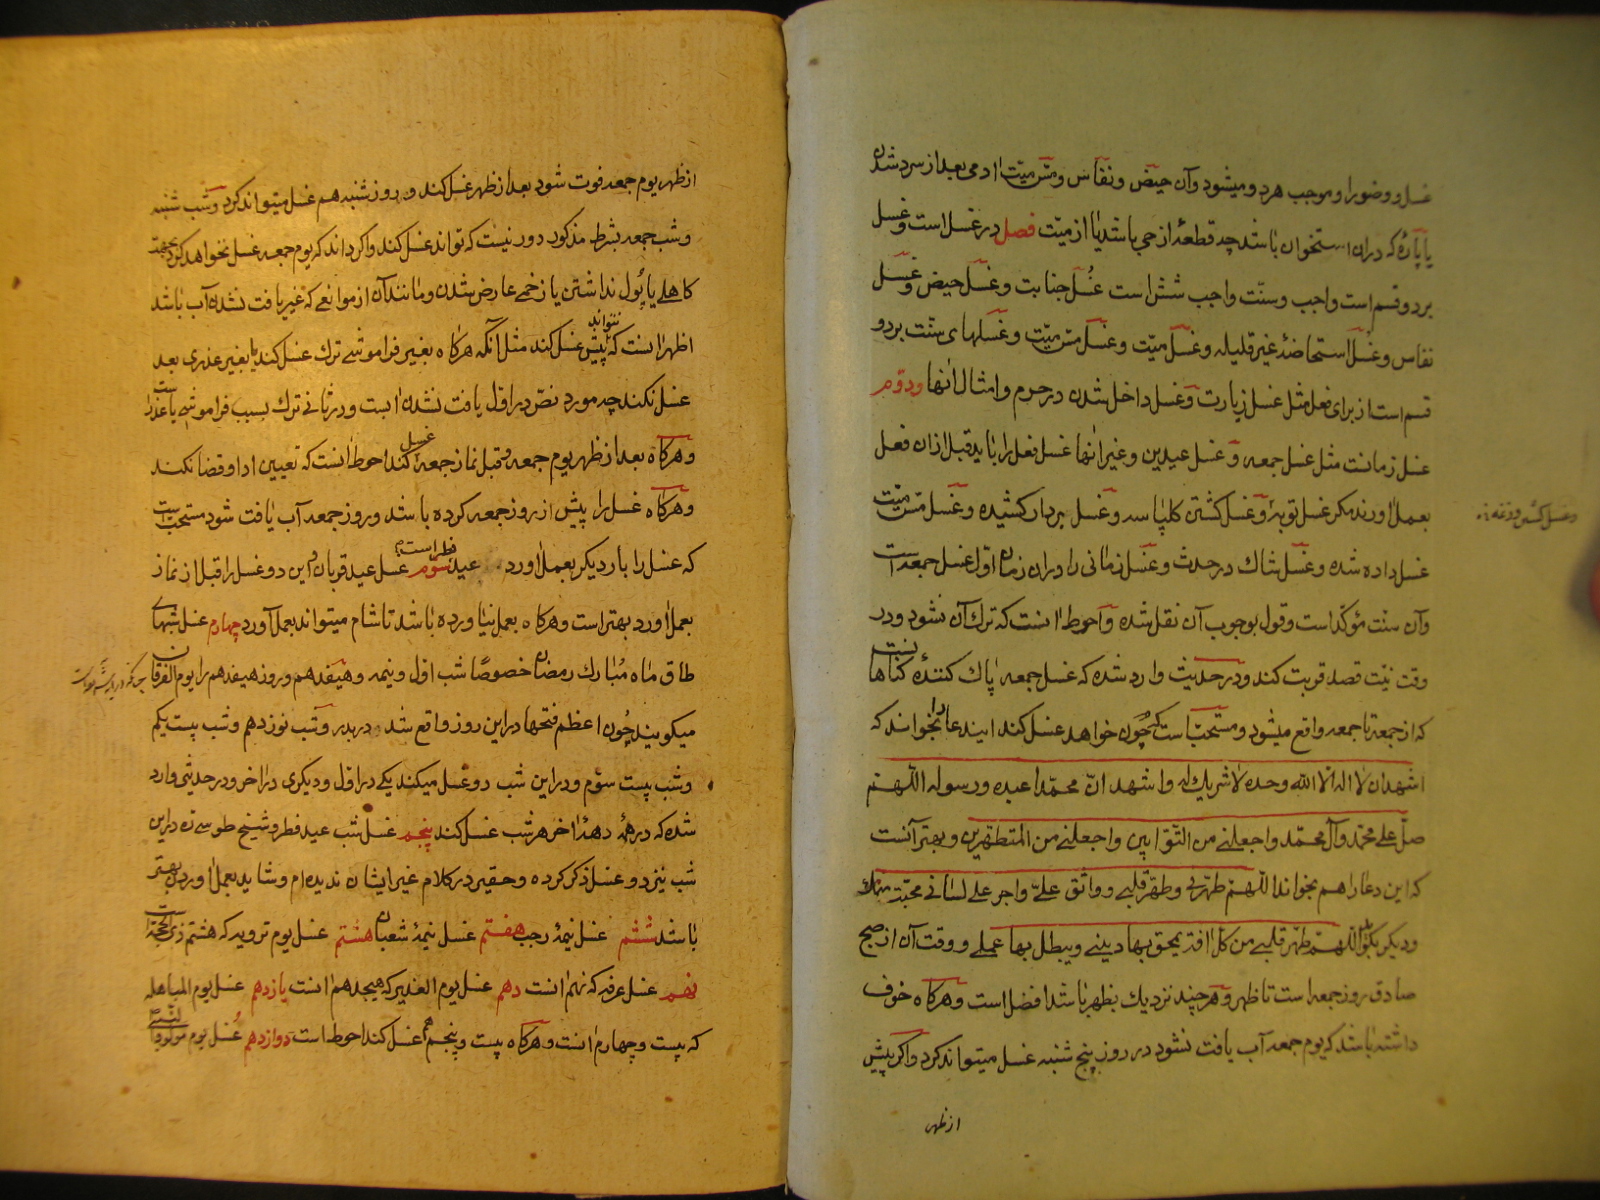 غسل و وضو را و موجب هر دو میشود و آن حیض و نفاس و مسّ میّت ادمی بعد از سرد شدن
یا پاره که در ان استخوان باشد چه قطعهٔ از حی باشد یا از میّت فصل در غسل است و غسل
بر دو قسم است واجب و سنّت واجب شش است غُسل جنابت و غسل حیض و غسل
نفاس و غسل استحاضهٔ غیر قلیله و غسل میّت و غسل مسّ میّت و غسلهای سنّت بر دو
قسم است از برای فعل مثل غسل زیارت و غسل داخل شدن در حرم و امثال انها و دوم
غسل زمانست مثل غسل جمعه و غسل عیدین و غیر انها غسل فعل را باید قبل از ان فعل
بعمل اورند مکر غسل توبه و غسل کشتن کلپاسه و غسل بردار کشیده و غسل مسّ میّت
غسل داده شده و غسل شاک در حدث و غسل زمانی را در ان زمان اول غسل جمعه است
و آن سنت مؤکّد است و قول بوجوب آن نقل شده و احوط انست که ترک آن نشود و در
وقت نیّت قصد قربت کند و در حدیث وارد شده که غسل جمعه پاک کنندهٔ کناهانیست
که از جمعه تا جمعه واقع میشود و مستحبّ است که چون خواهد غسل کند این دعا را بخواند که
اشهد ان لا اله الا الله وحده لا شریک له و اشهد انّ محمّدا عبده و رسوله اللّهمّ
صلّ علی محمّد و آل محمّد و اجعلنی من التّوّابین و اجعلنی من المتطهّرین و بهتر آنست
که این دعا را هم بخواند اللّهمّ طهّرنی و طهّر قلبی و واثق علیّ و اجر علی لسانی محبّت منک
و دیکر بکوید اللّهمّ طهّر قلبی من کلّ افة یمحق بها دینی و یبطل بها عملی و وقت آن از صبح
صادق روز جمعه است تا ظهر و هر چند نزدیک بظهر باشد افضل است و هرکاه خوف
داشته باشد که یوم جمعه آب یافت نشود در روز پنج شنبه غسل میتواند کرد و اکر پیش
از ظهر
از ظهر یوم جمعه فوت شود بعد از ظهر غسل کند و روز شنبه هم غسل میتواند کرد و شب شنبه
و شب جمعه بشرط مذکور دور نیست که تواند غسل کند و اکر داند که یوم جمعه غسل نخواهد کرد بجهت
کاهلی یا پول نداشتن یا زخمی عارض شدن و مانند آن از موانعی که غیر یافت نشدن آب باشد
اظهر انست که پیش نتواند غسل کند مثل آنکه هرکاه بغیر فراموشی ترک غسل کند یا بغیر عذری بعد
غسل نکند چه مورد نصّ در اوّل یافت نشدن ابست و در ثانی ترک بسبب فراموشی یا عذر است
و هرکاه بعد از ظهر یوم جمعه و قبل نماز جمعه غسل کند احوط انست که تعیین ادا و قضا نکند
و هرکاه غسل را پیش از روز جمعه کرده باشد و روز جمعه آب یافت شود مستحبّ است
که غسل را بار دیکر بعمل اورد عید فطر است سوم غسل عید قربان و این دو غسل را قبل از نماز
بعمل اورد بهتر است و هرکاه بعمل نیاورده باشد تا شام میتواند بعمل آورد چهارم غسل شبهای
طاق ماه مبارک رمضان خصوصًا شب اول و نیمه و هیفدهم و روز هیفدهم را یوم الفرقان
میکویند چون اعظم فتحها در این روز واقع شد در بدر و شب نوزدهم و شب بیست یکم
و شب بیست سوّم و در این شب دو غسل میکنند یکی در اوّل و دیکری در اخر و در حدیثی وارد
شده که در همهٔ دههٔ اخر هر شب غسل کند پنجم غسل شب عید فطر و شیخ طوسی ره در این
شب نیز دو غسل ذکر کرده و حقیر در کلام غیر ایشان ندیده ام و شاید بعمل اوردن بهتر
باشد ششم غسل نیمهٔ رجب هفتم غسل نیمهٔ شعبان هشتم غسل یوم ترویه که هشتم ذی الحجّه است
نهم غسل عرفه که نهم انست دهم غسل یوم الغدیر که هیجدهم انست یازدهم غسل یوم المباهله
که بیست و چهارم انست و هرکاه بیست و پنجم هم غسل کند احوط است دوازدهم غُسل یوم مولود النّبی